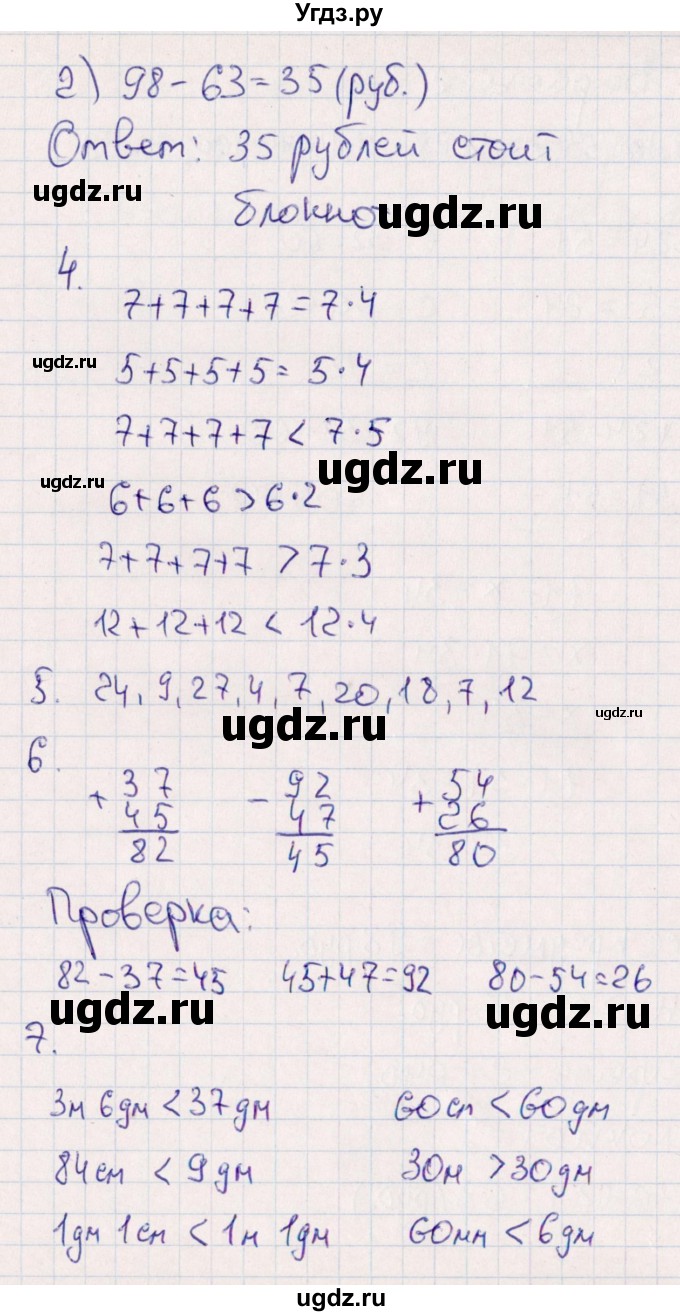 Угдз.ру
2) 98 - 63 = 35 (руб.)
Ответ: 35 рублей стоит
ugdz.ru
ugdz.ru
4.
7+7+7+7 = 7·4
ugdz.ru
5+5+5+5 = 5·4
7+7+7+7 < 7·5
ugdz.ru
ugdz.ru
6+6+6 > 6·2
7+7+7+7 > 7·3
12+12+12 < 12·4
5. 24, 9, 27, 4, 7, 20, 18, 7, 12
ugdz.ru
ugdz.ru
6.
+ 37 - 92 + 54
45 47 26
82 45 80
Проверка:
82 - 37 = 45 45+47=92 80-54=26
ugdz.ru
ugdz.ru
7.
3м 6дм < 37дм 60см < 60дм
84см < 9дм 30м > 30дм
1дм 1см < 1м 1дм 60мм < 6дм
ugdz.ru